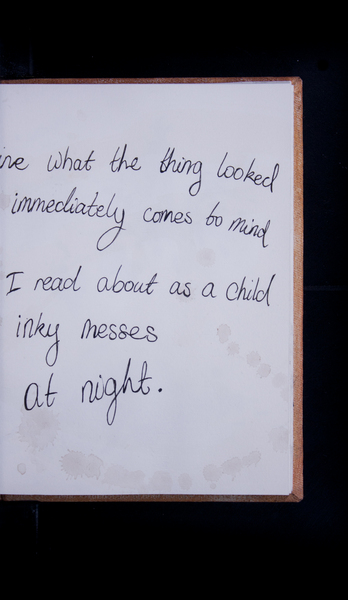 what the thing looked
immediately comes to mind
I read about as a child
inky messes
at night.